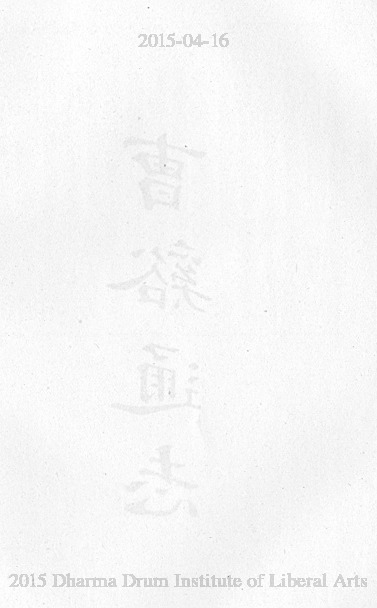 2015-04-16
曹谿通志
2015 Dharma Drum Institute of Liberal Arts